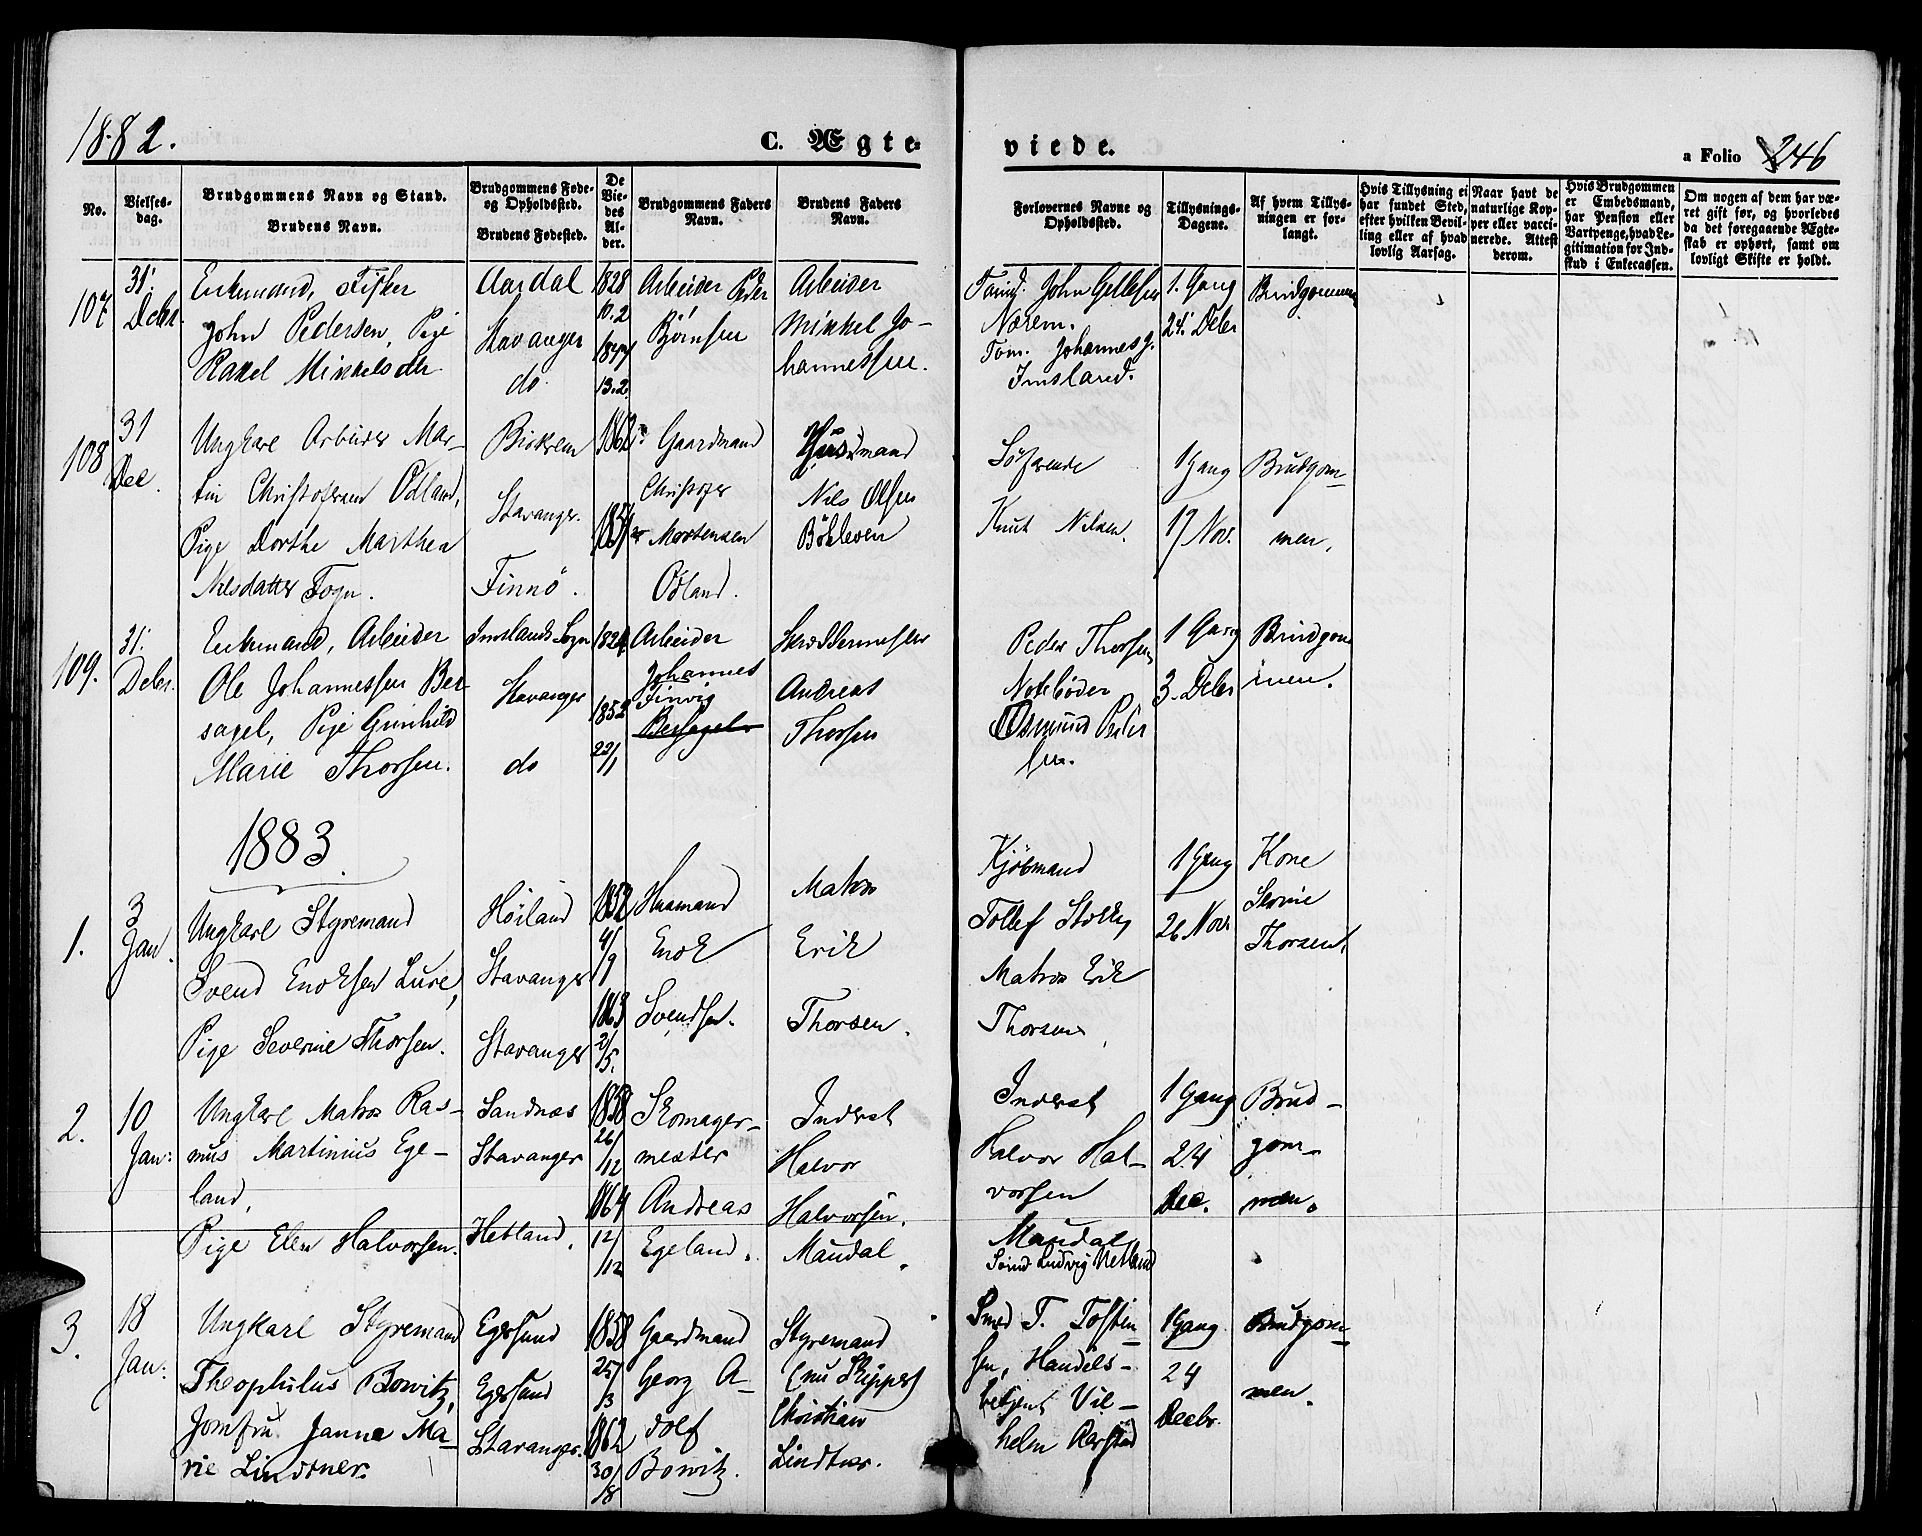 1882.
C. Ægte-
viede.
a Folio 246
No.
Vielses-
dag.
Brudgommens Navn og Stand.
Brudens Navn.
Brudgommens Føde-
og Opholdssted.
Brudens Fødested.
De
Vie-
des
Al-
der.
Brudgommens Faders
Navn.
Brudens Faders
Navn.
Forlovernes Navne og
Opholdssted.
Tillysnings-
Dagene.
Af hvem Tillys-
ningen er for-
langt.
Hvis Tillysning ei
har fundet Sted,
efter hvilken Bevil-
ling eller af hvad
lovlig Aarsag.
Naar havt de
naturlige Kop-
per eller vacci-
nerede. Attest
derom.
Hvis Brudgommen
er Embedsmand,
har Pension eller
Vartpenge, hvad Le-
gitimation for Ind-
skud i Enkecassen.
Om nogen af dem har væ-
ret gift før, og hvorledes
da det foregaaende Ægte-
skab er ophørt, samt om
lovligt Skifte er holdt.
107
31:
Decbr.
Enkemand, Fisker
John Pedersen, Pige
Rakel Mikkelsdtr.
Aardal
Stavanger
do
1828
10.2
1844
13.2
Arbeider Peder
Bjørnsen
Arbeider
Mikkel Jo-
hannessen.
John Gellesen
Nærem.
Johannes J.
Imsland.
1. Gang
24. Decbr
Brudgommen
108
31
Dec.
Ungkarl Arbeider Mar-
tin Christofersen Ødland,
Pige Dorthe Marthea
Nilsdatter Fogn.
Birkrem
Stavanger.
Finnø.
Gaardmand
Christofer
Mortensen
Ødland.
Husmand
Nils Olsen
Bøkleven
Søfarende
Knut Nilsen.
1 Gang
17 Nov.
Brudgom-
men.
109.
31.
Decbr.
Enkemand, Arbeider
Ole Johannessen Ber-
sagel, Pige Gunhild
Marie Thorsen.
Imslands Sogn
Stavanger
do
1824
1852
22/1
Arbeider
Johannes
Finvig
Bersagel
Andreas
Thorsen
Peder Thorsen
Notebøder
Osmund Peder
sen.
1 Gang
3. Decbr
Brudgom
men.
1883
1.
3
Jan.
Ungkarl Styremand
Svend Enoksen Lure,
Pige Severine Thorsen.
Høiland
Stavanger
Stavanger
1852
4/9
1863
2/5.
Huusmand
Enok
Svendsen.
Matros
Erik
Thorsen.
Kjøbmand
Tollef
Matros Erik
Thorsen,
1 Gang
26 Nov.
Kone
Serine
Thorsen.
2.
10
Jan:
Ungkarl Matros Ras-
mus Martinius Ege-
land,
Pige Elen Halvorsen.
Sandnæs
Stavanger
Hetland,
1858
26/12
1864
12/12
Skomager-
mester
Andreas
Egeland.
Inderst
Halvor
Halvorsen.
Maudal.
Inderst
Halvor Hal-
vorsen
Maudal
Ludvig Netland
1 Gang
24
Dec.
Brud-
gom-
men.
3.
18
Jan:
Ungkarl Styremand
Theophilus Bowitz,
Jomfru Janna Ma-
rie Lindtner.
Egersund
Egersund
Stavanger.
1858
25/3
1862
30/8
Gaardmand
Georg A-
dolf
Bowitz.
Styremand
(nu Skipper)
Christian
Lindtner.
Smed T. Tosten-
sen, Handels-
betjent Vil-
helm Aarstad
1 Gang
24
Decbr.
Brudgom-
men.